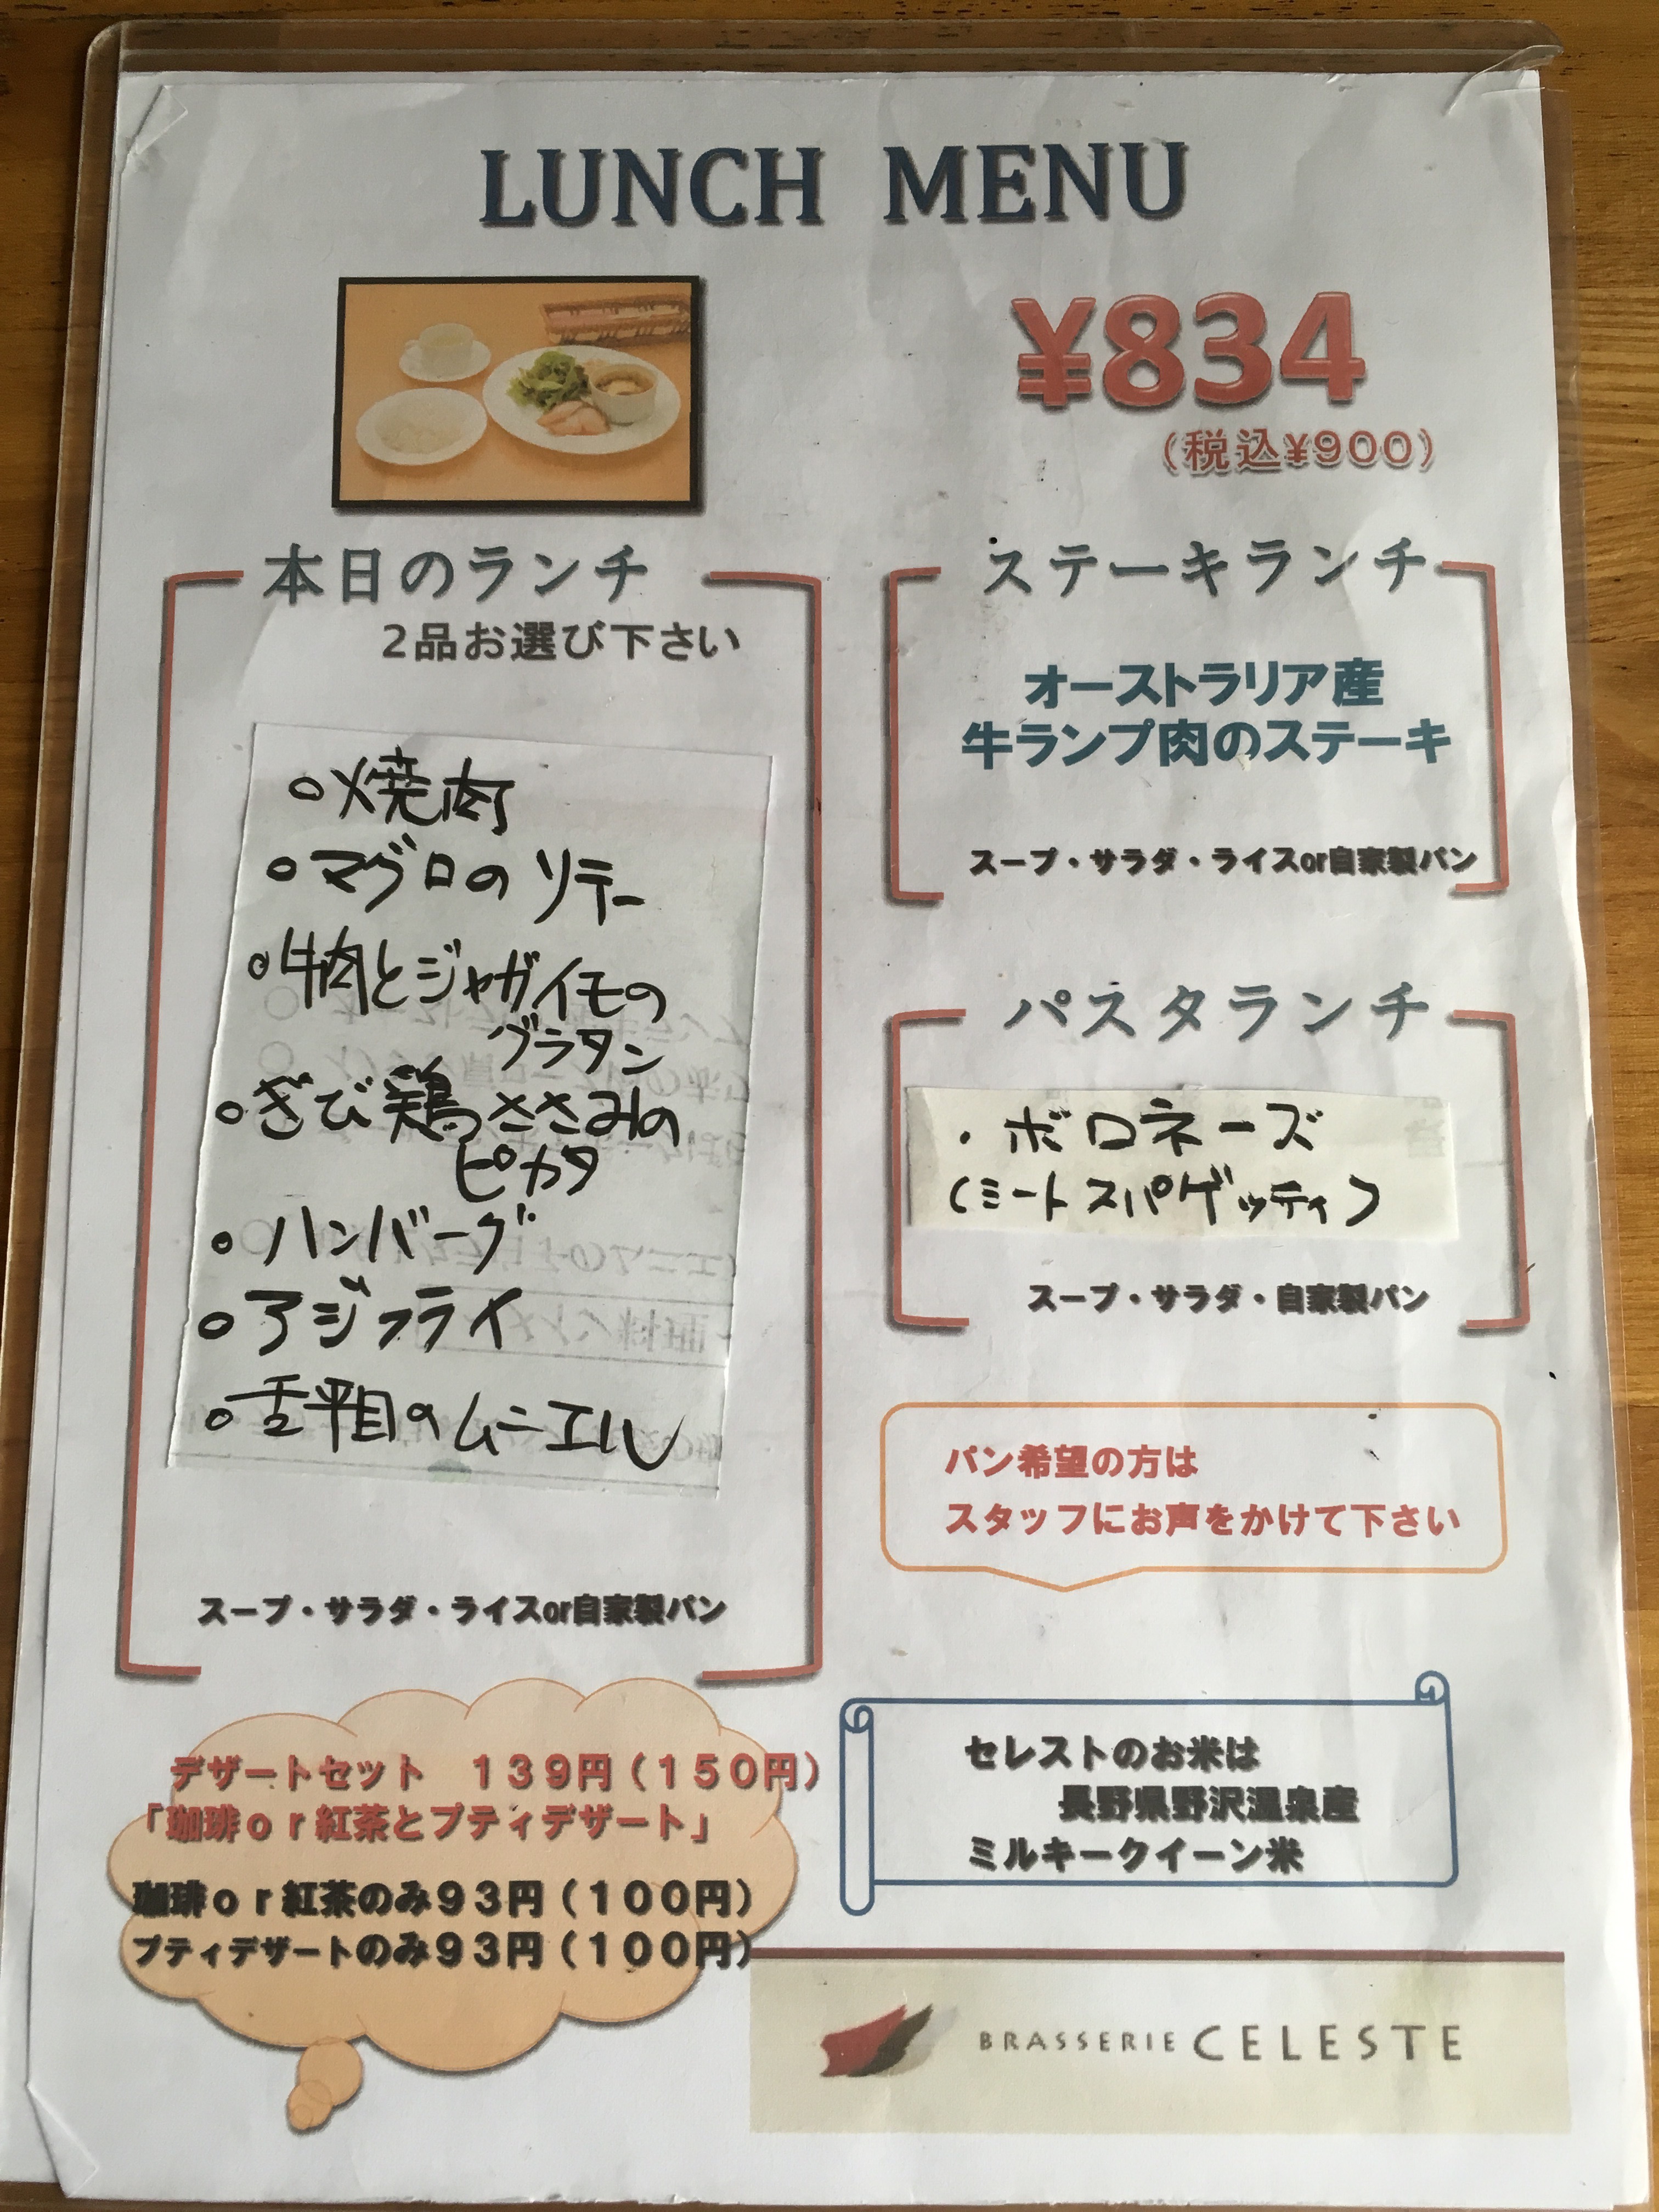 LUNCH MENU
¥834
(税込¥900)
本日のランチ
2品お選び下さい
○焼肉
○マグロのソテー
○牛肉とジャガイモの
グラタン
○きび鶏ささみの
ピカタ
○ハンバーグ
○アジフライ
○舌平目のムニエル
スープ・サラダ・ライスor自家製パン
ステーキランチ
オーストラリア産
牛ランプ肉のステーキ
スープ・サラダ・ライスor自家製パン
パスタランチ
・ボロネーズ
(ミートスパゲッティ)
スープ・サラダ・自家製パン
パン希望の方は
スタッフにお声をかけて下さい
デザートセット　139円(150円)
「珈琲or紅茶とプティデザート」
珈琲or紅茶のみ93円(100円)
プティデザートのみ93円(100円)
セレストのお米は
長野県野沢温泉産
ミルキークイーン米
BRASSERIE CELESTE